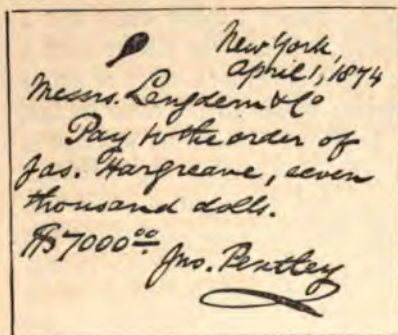 New York,
April 1, 1874
Messrs. Langdem & Co
Pay to the order of
Jas. Hargreave, seven
thousand dolls.
$7000 00
Jno. Pentley